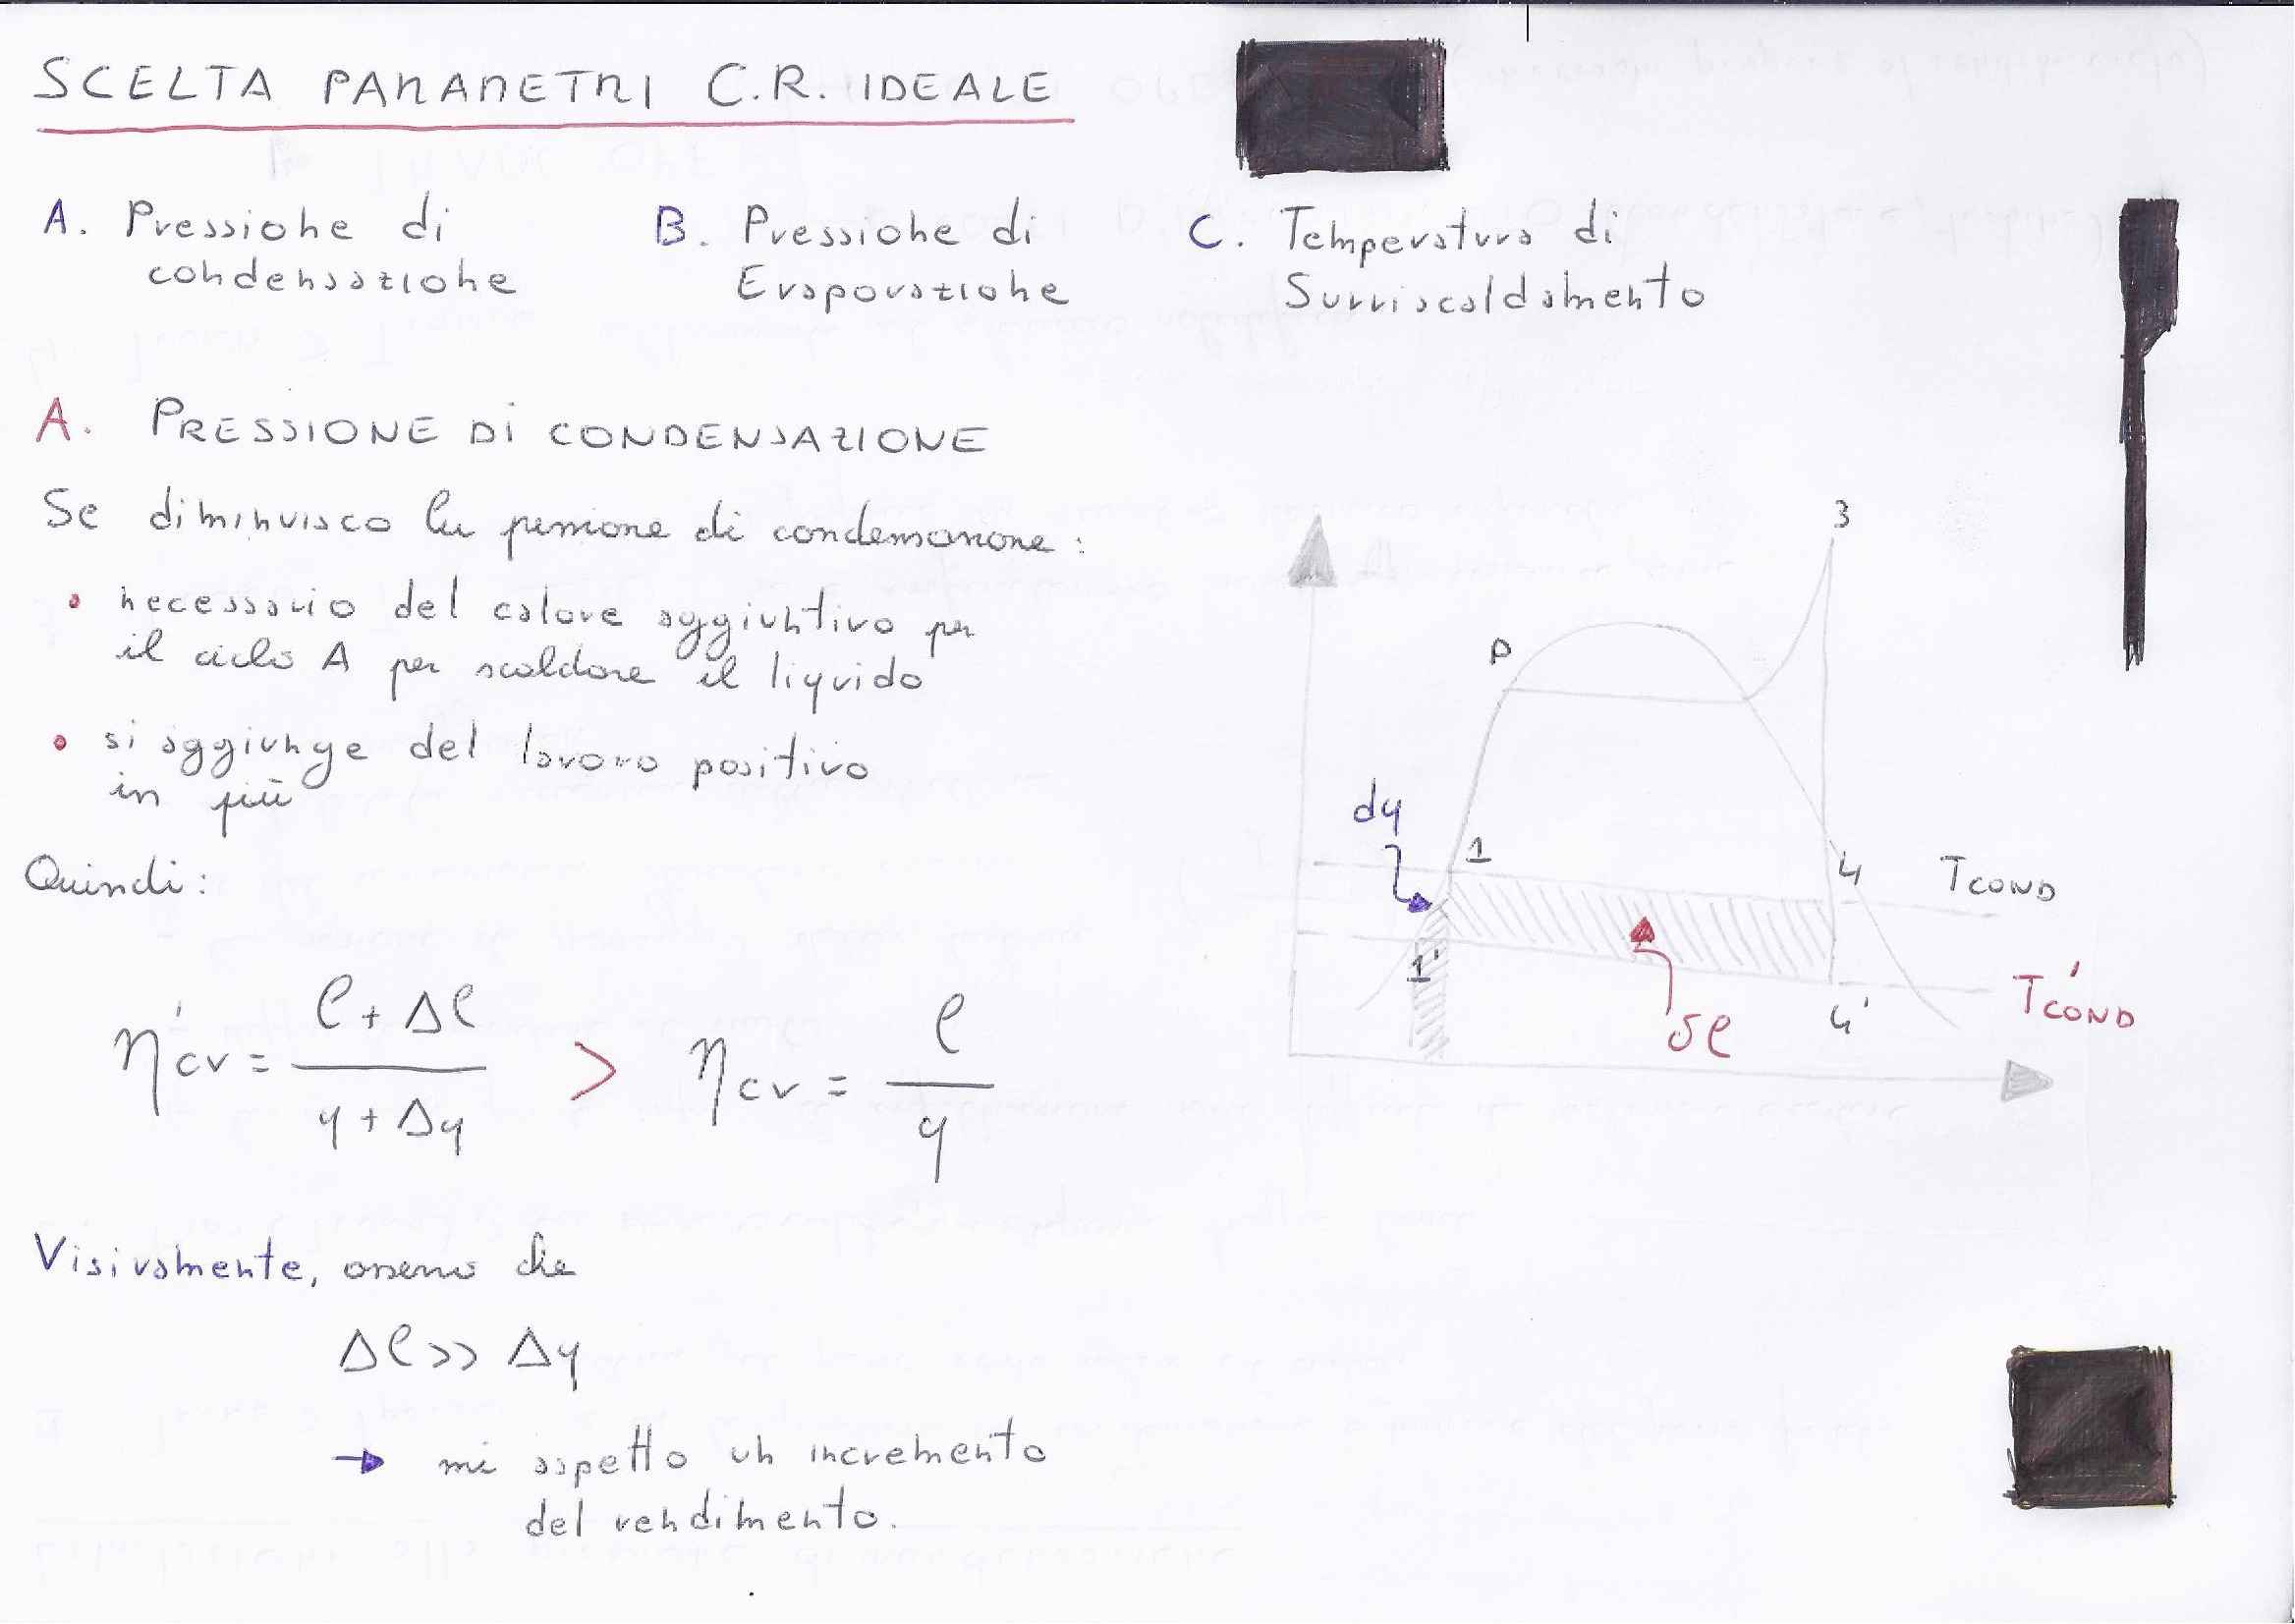 SCELTA PARAMETRI C.R. IDEALE
A. Pressione di condensazione
B. Pressione di Evaporazione
C. Temperatura di Surriscaldamento
A. PRESSIONE DI CONDENSAZIONE
Se diminuisco la pressione di condensazione:
• necessario del calore aggiuntivo per
il ciclo A per scaldare il liquido
• si aggiunge del lavoro positivo
in più
Quindi:
η'cv = (l + Δl) / (q + Δq) > ηcv = l / q
Visivamente, osservo che
Δl >> Δq
→ mi aspetto un incremento
del rendimento.
3
P
dq
1
4
TCOND
1'
T'COND
4'
δl